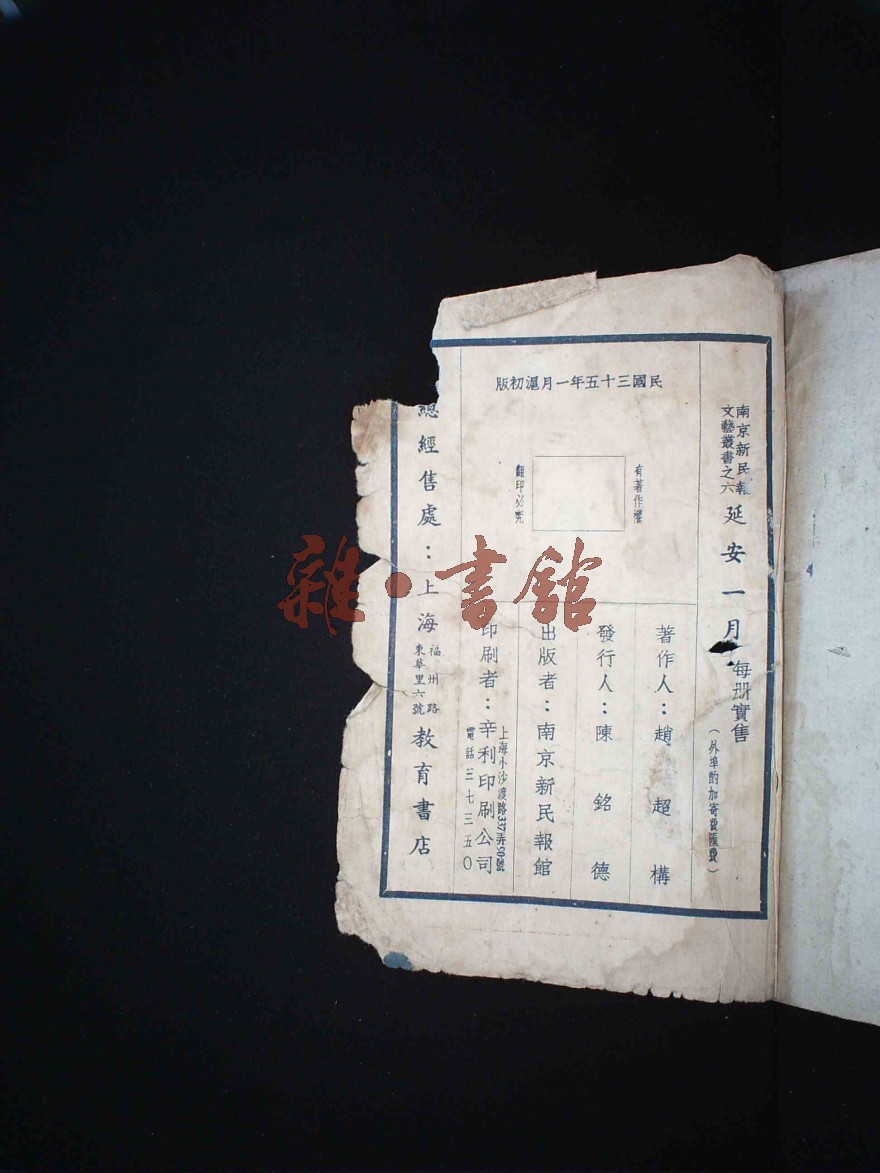 南京新民報
文藝叢書之六
延安一月
每册實售
（外埠酌加寄費匯費）
民國三十五年一月滬初版
有著作權
翻印必究
著作人：趙超構
發行人：陳銘德
出版者：南京新民報館
印刷者：辛利印刷公司
上海小沙渡路337弄90號
電話三七三五〇
總經售處：上海
福州路
東華里六號
教育書店
雜·書館